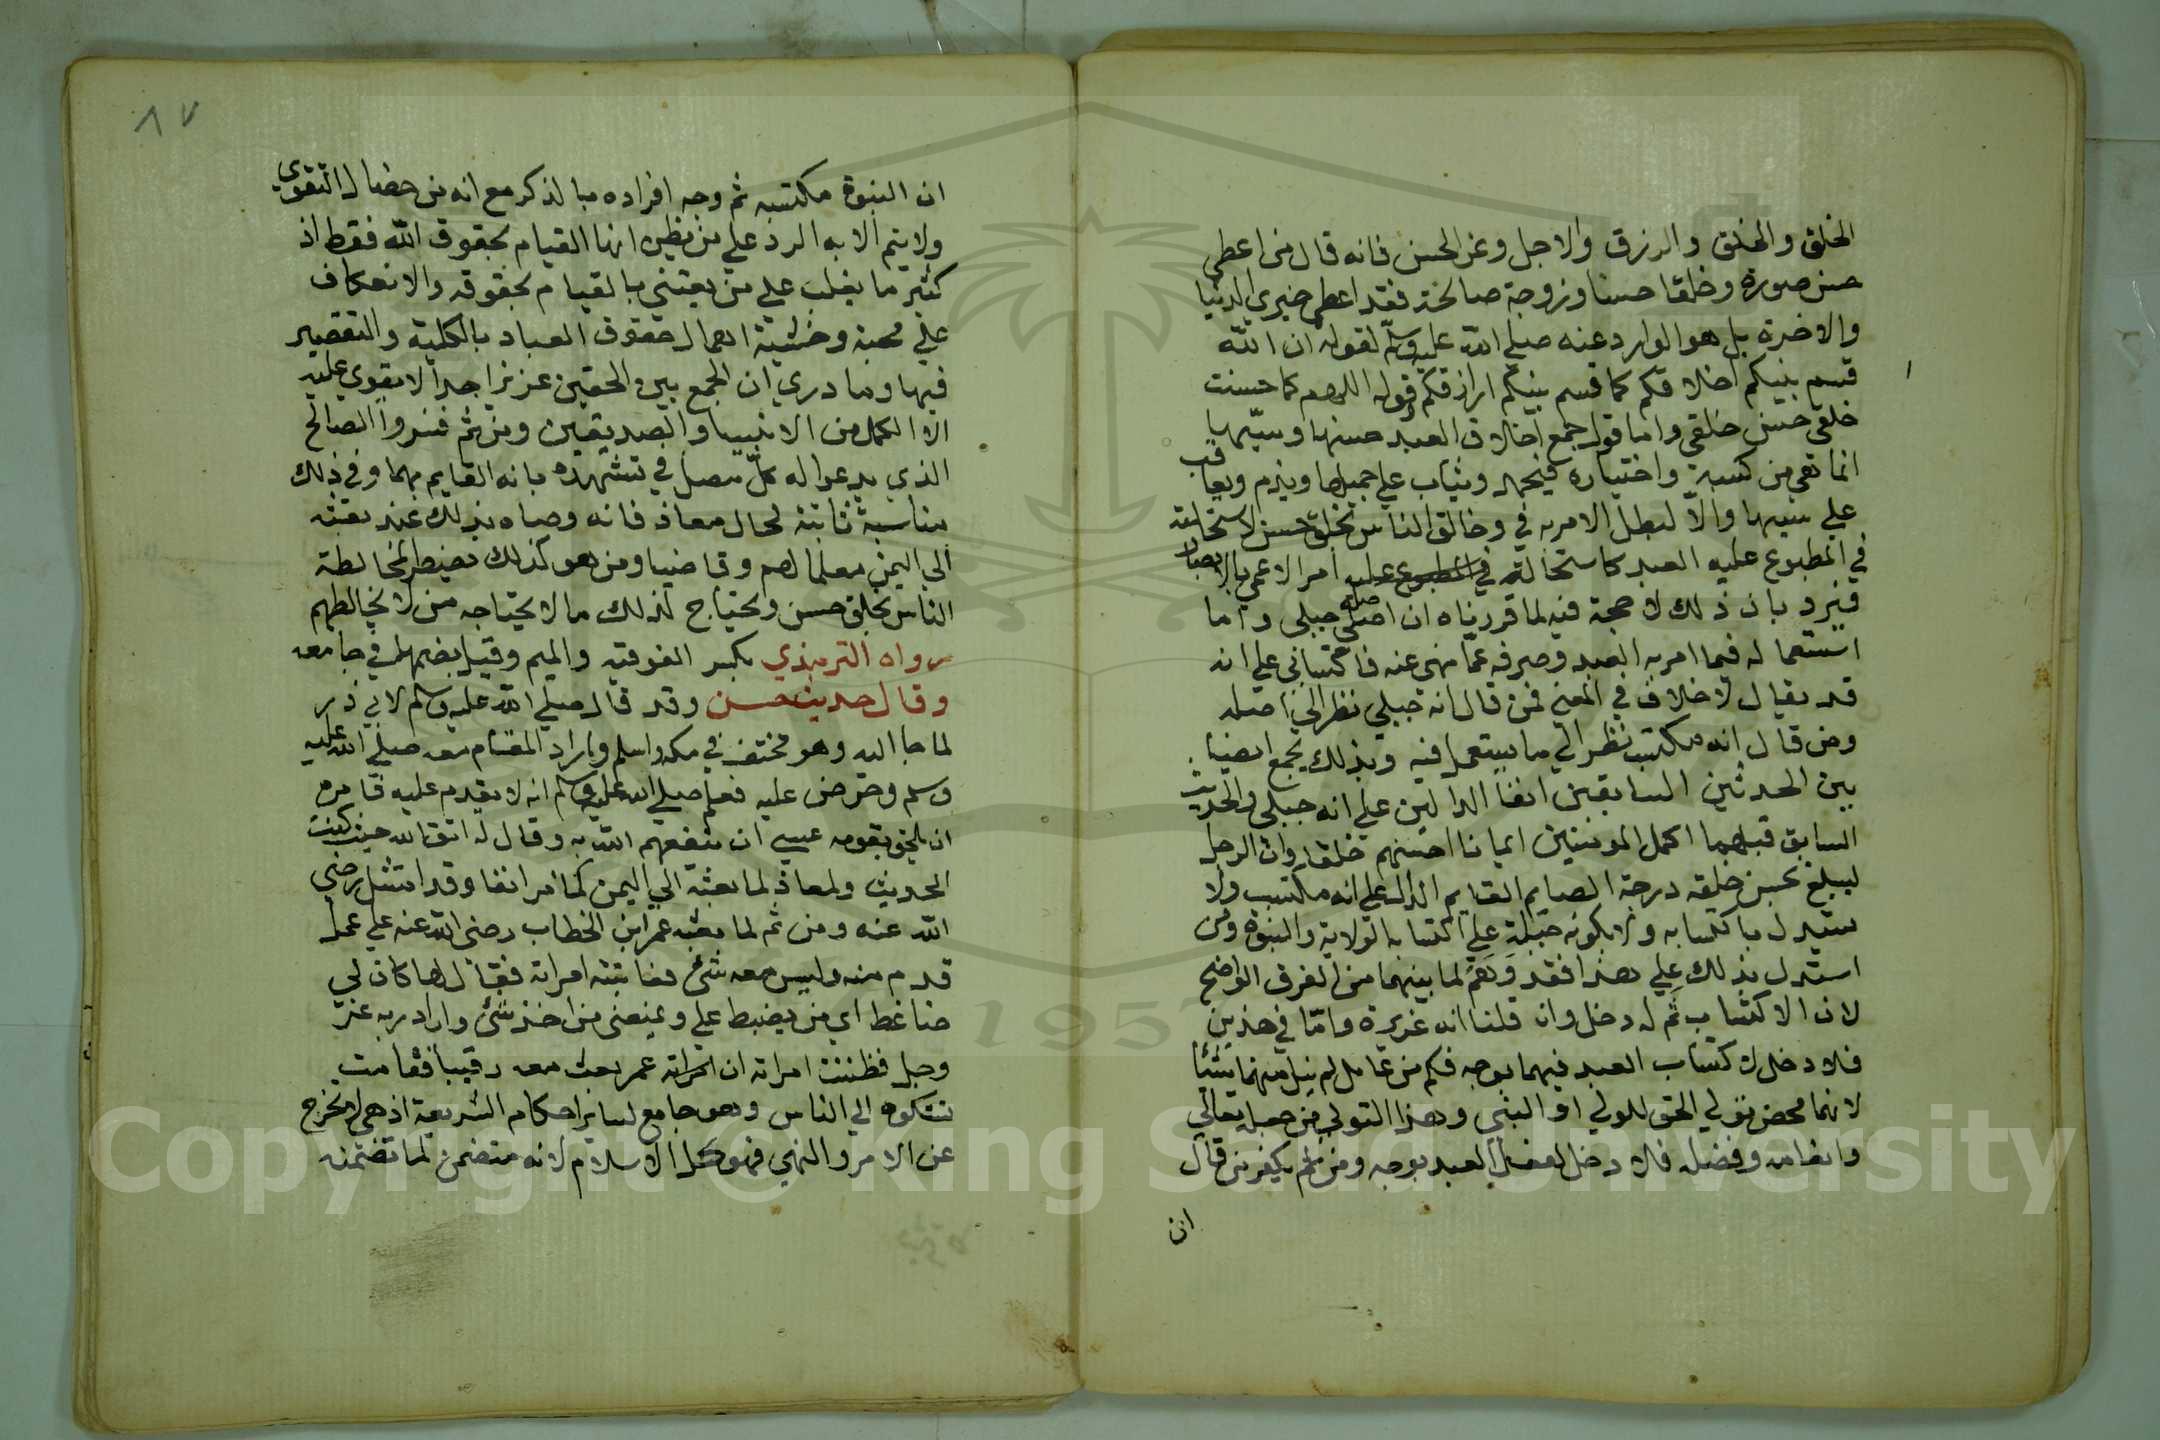 الخلق والخلق والرزق والاجل وعن الحسن فانه قال من اعطي
حسن صورة وخلقا حسنا وزوجة صالحة فقد اعطي خيري الدنيا
والاخرة بل هو الوارد عنه صلي الله عليه وسلم لقوله ان الله
قسم بينكم اخلاقكم كما قسم بينكم ارزاقكم وقوله اللهم كما حسنت
خلقي حسن خلقي واما قول جمع اخلاق العبد حسنها وسيها
انما تقي من كسبه واختياره فيحمد ويثاب علي جميلها ويذم ويعاقب
علي سيها والا لبطل الامر به في وخالق الناس بخلق حسن لاستحالته
في المطبوع عليه العبد كاستحالة امر الاعمي بالابصار
فيرد بان ذلك لا حجة فيه لما قررناه ان اصله جبلي واما
استعماله فيما امر به العبد وصرفه عما نهي عنه فاكتسابي علي انه
قد يقال لا خلاف في المعني فمن قال انه جبلي نظر الي اصله
ومن قال انه مكتسب نظر الي ما يستعمل فيه وبذلك يجمع ايضا
بين الحدثين السابقين انفا الدالين علي انه جبلي والحديث
السابق قبلهما اكمل المومنين ايمانا احسنهم خلقا وان الرجل
ليبلغ بحسن خلقه درجة الصايم القايم الدال علي انه مكتسب ولا
يستدل باكتسابه ولا بكونه جبلة علي اكتساب الولاية والنبوة ومن
استدل بذلك علي هذا فقد وهم لما بينهما من الفرق الواضح
لان الاكتساب ثم له دخل وان قلنا انه غريزة واما في هذين
فلا دخل لاكتساب العبد فيهما بوجه فكم من عامل لم ينل منهما شيئا
لانهما محض تولي الحق للولي او النبي وهذا التولي من تعالي
وانعامه وفضله فلا دخل لفعل العبد بوجه ومن ثم يكفر من قال
ان
٨٧
ان النبوة مكتسبه ثم وجه افراده بالذكر مع انه من خصال التقوي
ولا يتم الا به الرد علي من يظن انها القيام بحقوق الله فقط اذ
كثير ما يغلب علي من يعتني بالقيام بحقوقه والانعكاف
علي محبته وخشيته اهمال حقوق العباد بالكلية والتقصير
فيها وما دري ان الجمع بين الحقين عزيز جدا لا يقوي عليه
الا الكمل من الانبيا والصديقين ومن ثم فسروا الصالح
الذي يدعوا له كل مصل في تشهده بانه القايم بهما وفي ذلك
مناسبة ثابتة لحال معاذ فانه وصاه بذلك عند بعثه
الي اليمن معلما لهم وقاضيا ومن هو كذلك مضطر لمخالطة
الناس بخلق حسن ويحتاج لذلك ما لا يحتاجه من لا يخالطهم
رواه الترمذي بكسر الفوقيه والميم وقيل بضمهما في جامعه
وقال حديث حسن وقد قال صلي الله عليه وسلم لابي ذر
لما جا اليه وهو مختف في مكه واسلم واراد المقام معه صلي الله عليه
وسلم وحرض عليه فعلم صلي الله عليه وسلم انه لا يقدم عليه فامره
ان يلحق بقومه عسي ان ينفعهم الله به وقال له اتق الله حيث كنت
الحديث ولمعاذ لما بعثه الي اليمن كما مر انفا وقد امتثل رضي
الله عنه ومن ثم لما بعثه عمر ابن الخطاب رضي الله عنه علي عمل
قدم منه وليس معه شئ فعاتبته امراته فقال لها كان لي
ضاغط اي من يضبط علي ويمنعني من اخذ شئ واراد ربه عز
وجل فظننت امراته ان عمر بعث معه رقيبا فقامت
تشكوه الي الناس وهو جامع لساير احكام الشريعة اذ هي لا تخرج
عن الامر والنهي فهو كل الاسلام لانه متضمن لما تضمنه
Copyright © King Saud University
1957